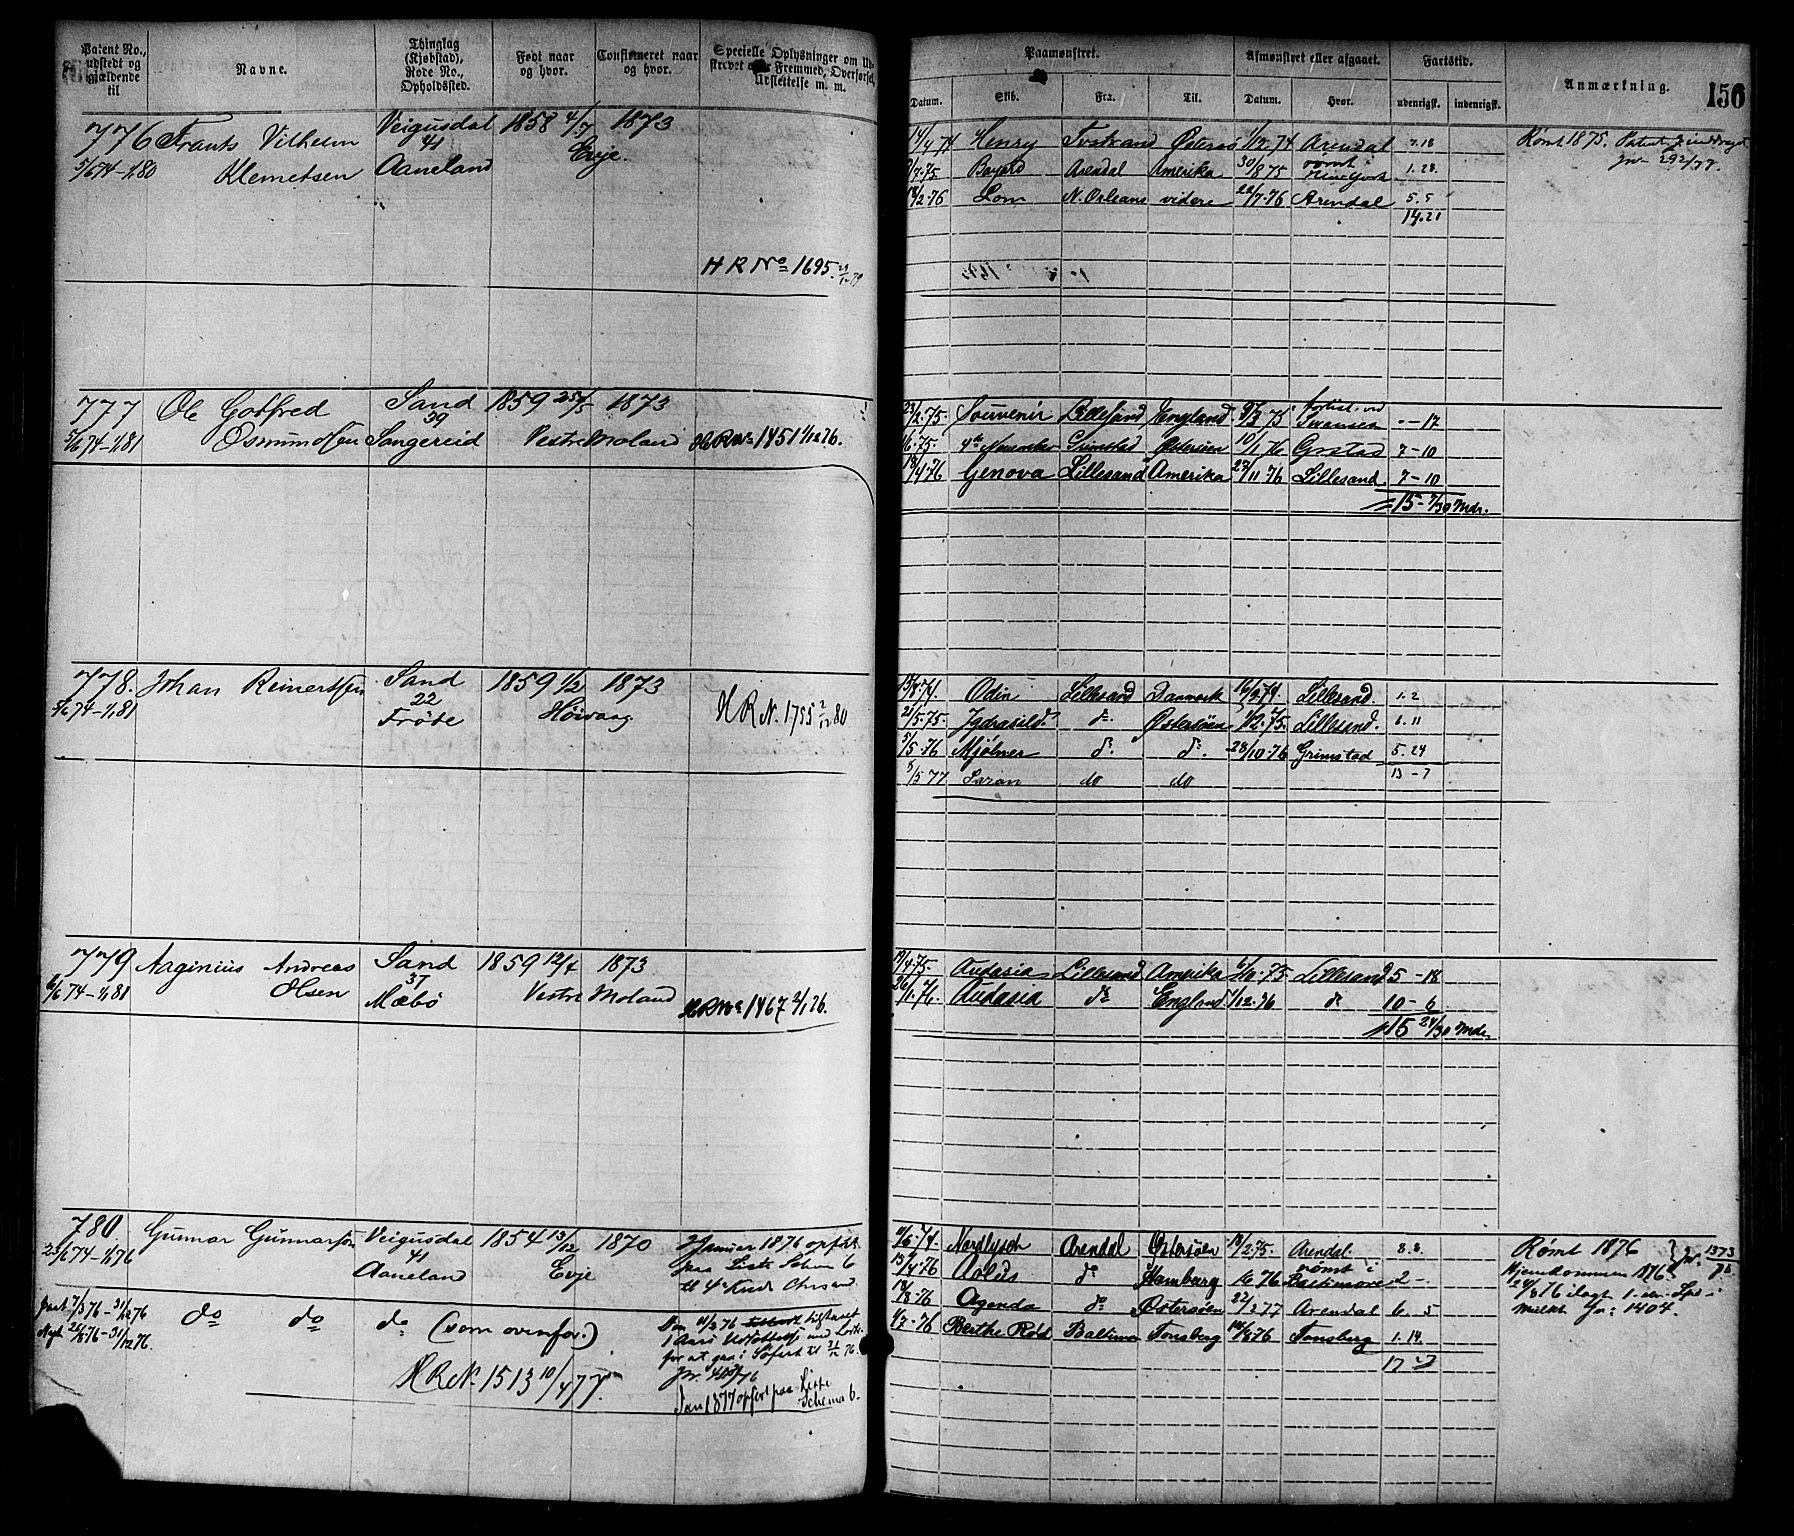 Patent No., udstedt og gjældende til
Navne.
Thinglag (Kjøbstad), Rode No., Opholdssted.
Født naar og hvor.
Confirmeret naar og hvor.
Specielle Oplysninger om Fremmed, Overførsel, Udslettelse m. m.
776 Frants Vilhelm Veigusdal 1858 4/7 1873
5/6 74 - 1/1 80 Klemetsen 41 Aaneland Evje.
H R No 1695.
777 Ole Gotfred Sand 1859 25/5 1873
5/6 74 - 1/1 81 Osmundsen 39 Sangereid Vestre Moland HRNo 1451 1/12 76.
778. Johan Reinertsen Sand 1859 1/2 1873
5/6 74 - 1/1 81 22 Frøbe Høivaag H R N. 1755 2/12 80
779 Aaginius Andreas Sand 1859 12/4 1873
6/6 74 - 1/1 81 Olsen 37 Mæbø Vestre Moland HRNo 1467 2/1 76.
780. Gunnar Gunnarsen Veigusdal 1854 13/12 1870 Januar 1876 opført
23/6 74 - 1/1 76 41 Aaneland Evje paa Liste Schema 6
til
7/3 76 - 31/12 76 do do do (som ovenfor.) Den 11/2 76
Nyt 26/8 76 - 31/12 76. 1 Aars
for at gaa i Søfart til 31/12 76.
H R N. 1513 10/4 77.
Jan 1877 opført paa Liste
Schema 6.
Paamønstret.
Afmønstret eller afgaaet.
Fartstid.
Anmærkning.
156
Datum. Skib. Fra. Til. Datum. Hvor. udenrigsk. indenrigsk.
14/4 74 Henry Tvestrand Østersø 1/12 74 Arendal 7.18 Rømt 1875. Patent inddraget
7.75 Bayard Arendal Amerika 30/8 75 rømt i New York 1.28. Jnr 292/77.
12/2.76 Lom N. Orleans videre 22/7.76 Arendal 5.5
14.21
23/2.75. Souvenir Lillesand England 3 75 forlist ved Swansea "-17
6.75. 4de November Grimstad Østersøen 10/1 76 Grstad 7-10
19/4.76 Genova Lillesand Amerika 27/11 76 Lillesand 7-10
15-7/30 Mdr.
13/8.74. Odin Lillesand Danmark 16/9 74. Lillesand. 1.2
21/5.75. Igdrasild do Østersøen 12.75. Lillesand. 6.11
5/5.76 Mjølner do do 28/10.76 Grimstad 5.24
5/5 77 Saran do do 13-7
19/4.75. Audasia Lillesand Amerika 6/10.75. Lillesand 5-18
26/1.76. Audasia do England 1/12.76 do 10-6
15 24/30 Mdr.
11/6.74. Nordlyset Arendal Østersøen 19/2.75. Arendal 8.8. Rømt 1876
13/4.76 Aolus do Hamburg 76 rømt i Baltimore 2- Hjemkommen 1876
19/8.76 Agenda do Østersøen 22/2 77 Arendal 6.5 24/8 76 ilagt 1
1/7.76 Berthe Rød Baltimor Tønsberg 14/8 76 Tønsberg 1.14. Mulkt Jnr: 1404.
17-7